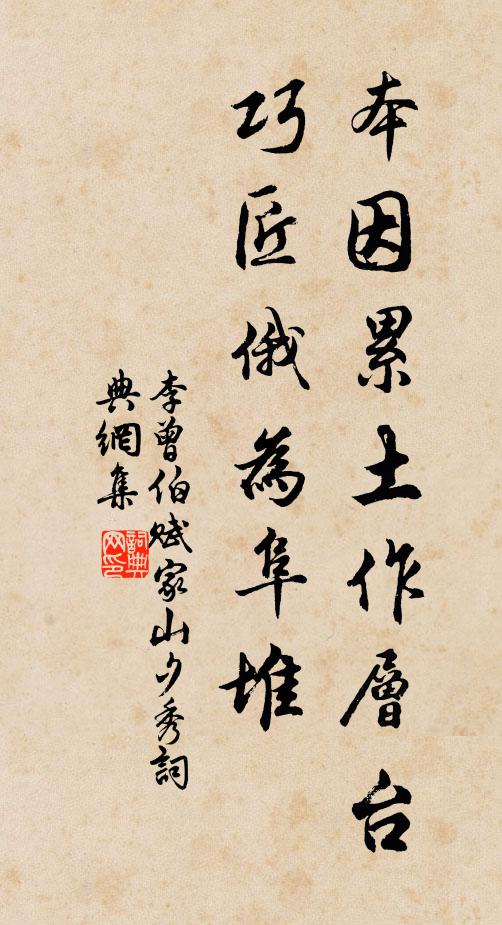 本因累土作層台
巧匠俄為阜堆
李曾伯賦家山夕秀詞
典網集
詞典
网印